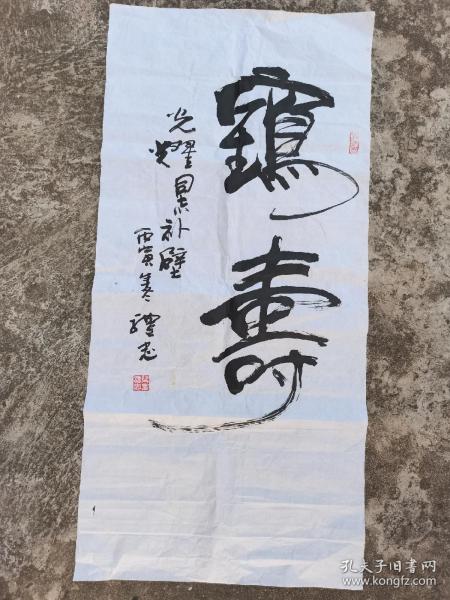 鶴壽
光耀果补壁
丙寅冬
孔夫子旧书网
www.kongfz.com